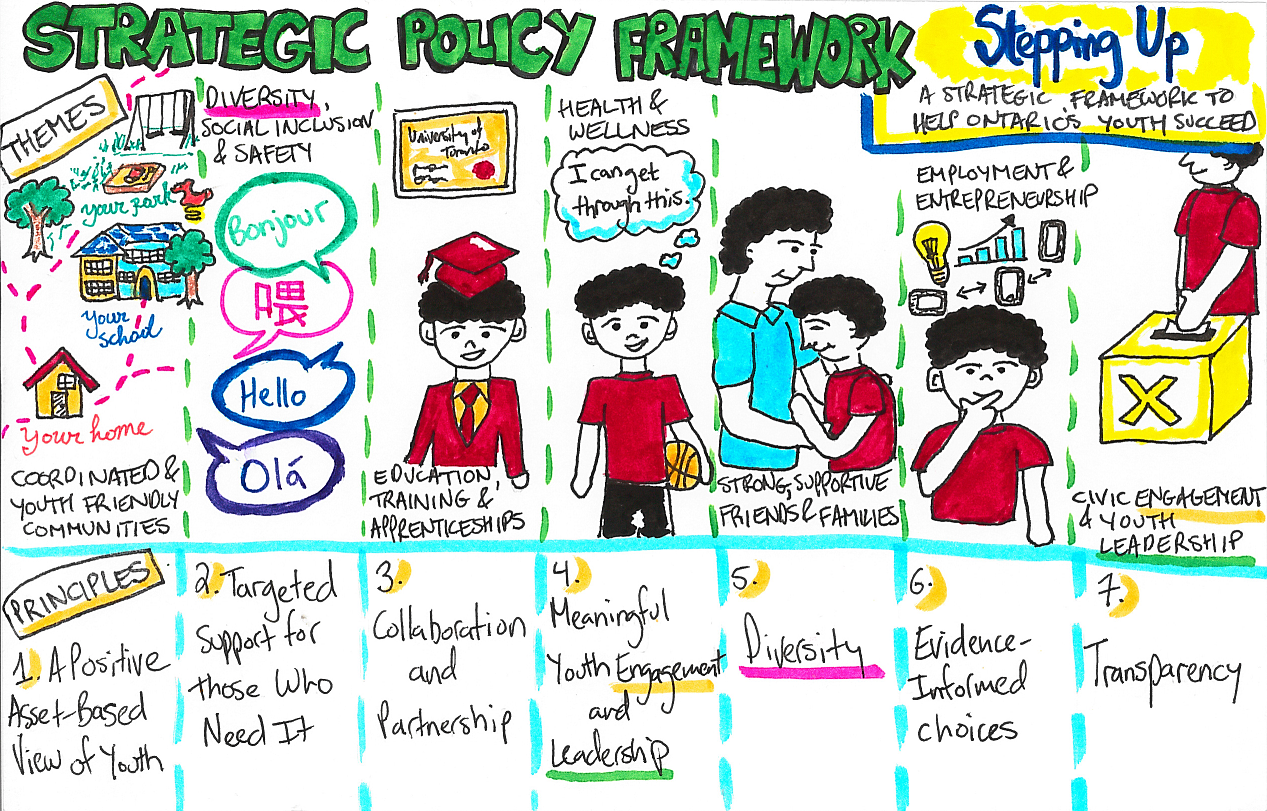 STRATEGIC POLICY FRAMEWORK
Stepping Up
A STRATEGIC FRAMEWORK TO
HELP ONTARIOS YOUTH SUCCEED
THEMES
your park
your
school
Your home
COORDINATED &
YOUTH FRIENDLY
COMMUNITIES
DIVERSITY,
SOCIAL INCLUSION
& SAFETY
Bonjour
喂
Hello
Olá
University of
Toronto
EDUCATION,
TRAINING &
APPRENTICESHIPS
HEALTH &
WELLNESS
I can get
through this.
STRONG, SUPPORTIVE
FRIENDS & FAMILIES
EMPLOYMENT &
ENTREPRENEURSHIP
X
CIVIC ENGAGEMENT
& YOUTH
LEADERSHIP
PRINCIPLES
1. A Positive
Asset-Based
View of Youth
2. Targeted
Support for
those Who
Need It
3.
Collaboration
and
Partnership
4.
Meaningful
Youth Engagement
and
Leadership
5.
Diversity
6.
Evidence-
Informed
choices
7.
Transparency